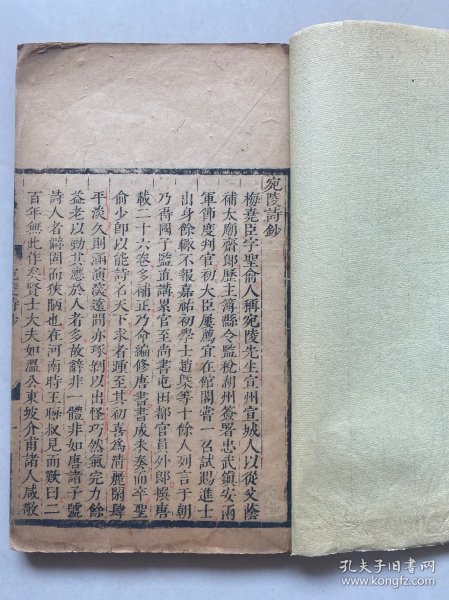 宛陵詩鈔
梅堯臣字聖俞人稱宛陵先生宣州宣城人以從父蔭
補太廟齋郎歷主簿縣令監稅湖州簽署忠武鎮安兩
軍節度判官初大臣屢薦宜在館閣嘗一召試賜進士
出身餘輒不報嘉祐初學士趙槩等十餘人列言于朝
乃得國子監直講累官至尚書屯田都官員外郎撰唐
載二十六卷多補正乃命編修唐書書成未奏而卒聖
俞少卽以能詩名天下求者踵至其初喜爲清麗閑肆
平淡久則涵演深遠間亦琢剝以出怪巧然氣完力餘
益老以勁其應於人者多故辭非一體非如唐諸子號
詩人者僻固而狹陋也在河南時王晦叔見而歎曰二
百年無此作矣賢士大夫如溫公東坡介甫諸人咸敬
孔夫子旧书网
www.kongfz.com